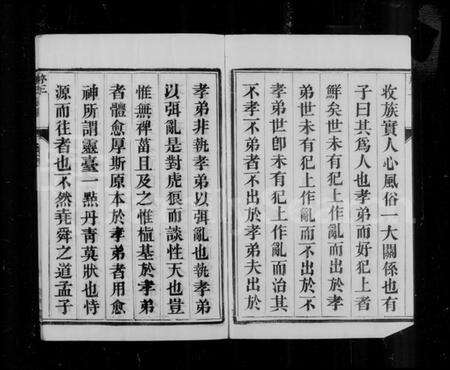 收族實人心風俗一大關係也有
子曰其為人也孝弟而好犯上者
鮮矣世未有犯上作亂而出於孝
弟世未有犯上作亂而不出於不
孝弟世卽未有犯上作亂而治其
不孝不弟者不出於孝弟夫出於
孝弟非執孝弟以弭亂也執孝弟
以弭亂是對虎狼而談性天也豈
惟無裨菑且及之惟植基於孝弟
者體愈厚斯原本於孝弟者用愈
神所謂靈臺一點丹青莫狀也恃
源而往者也不然堯舜之道孟子